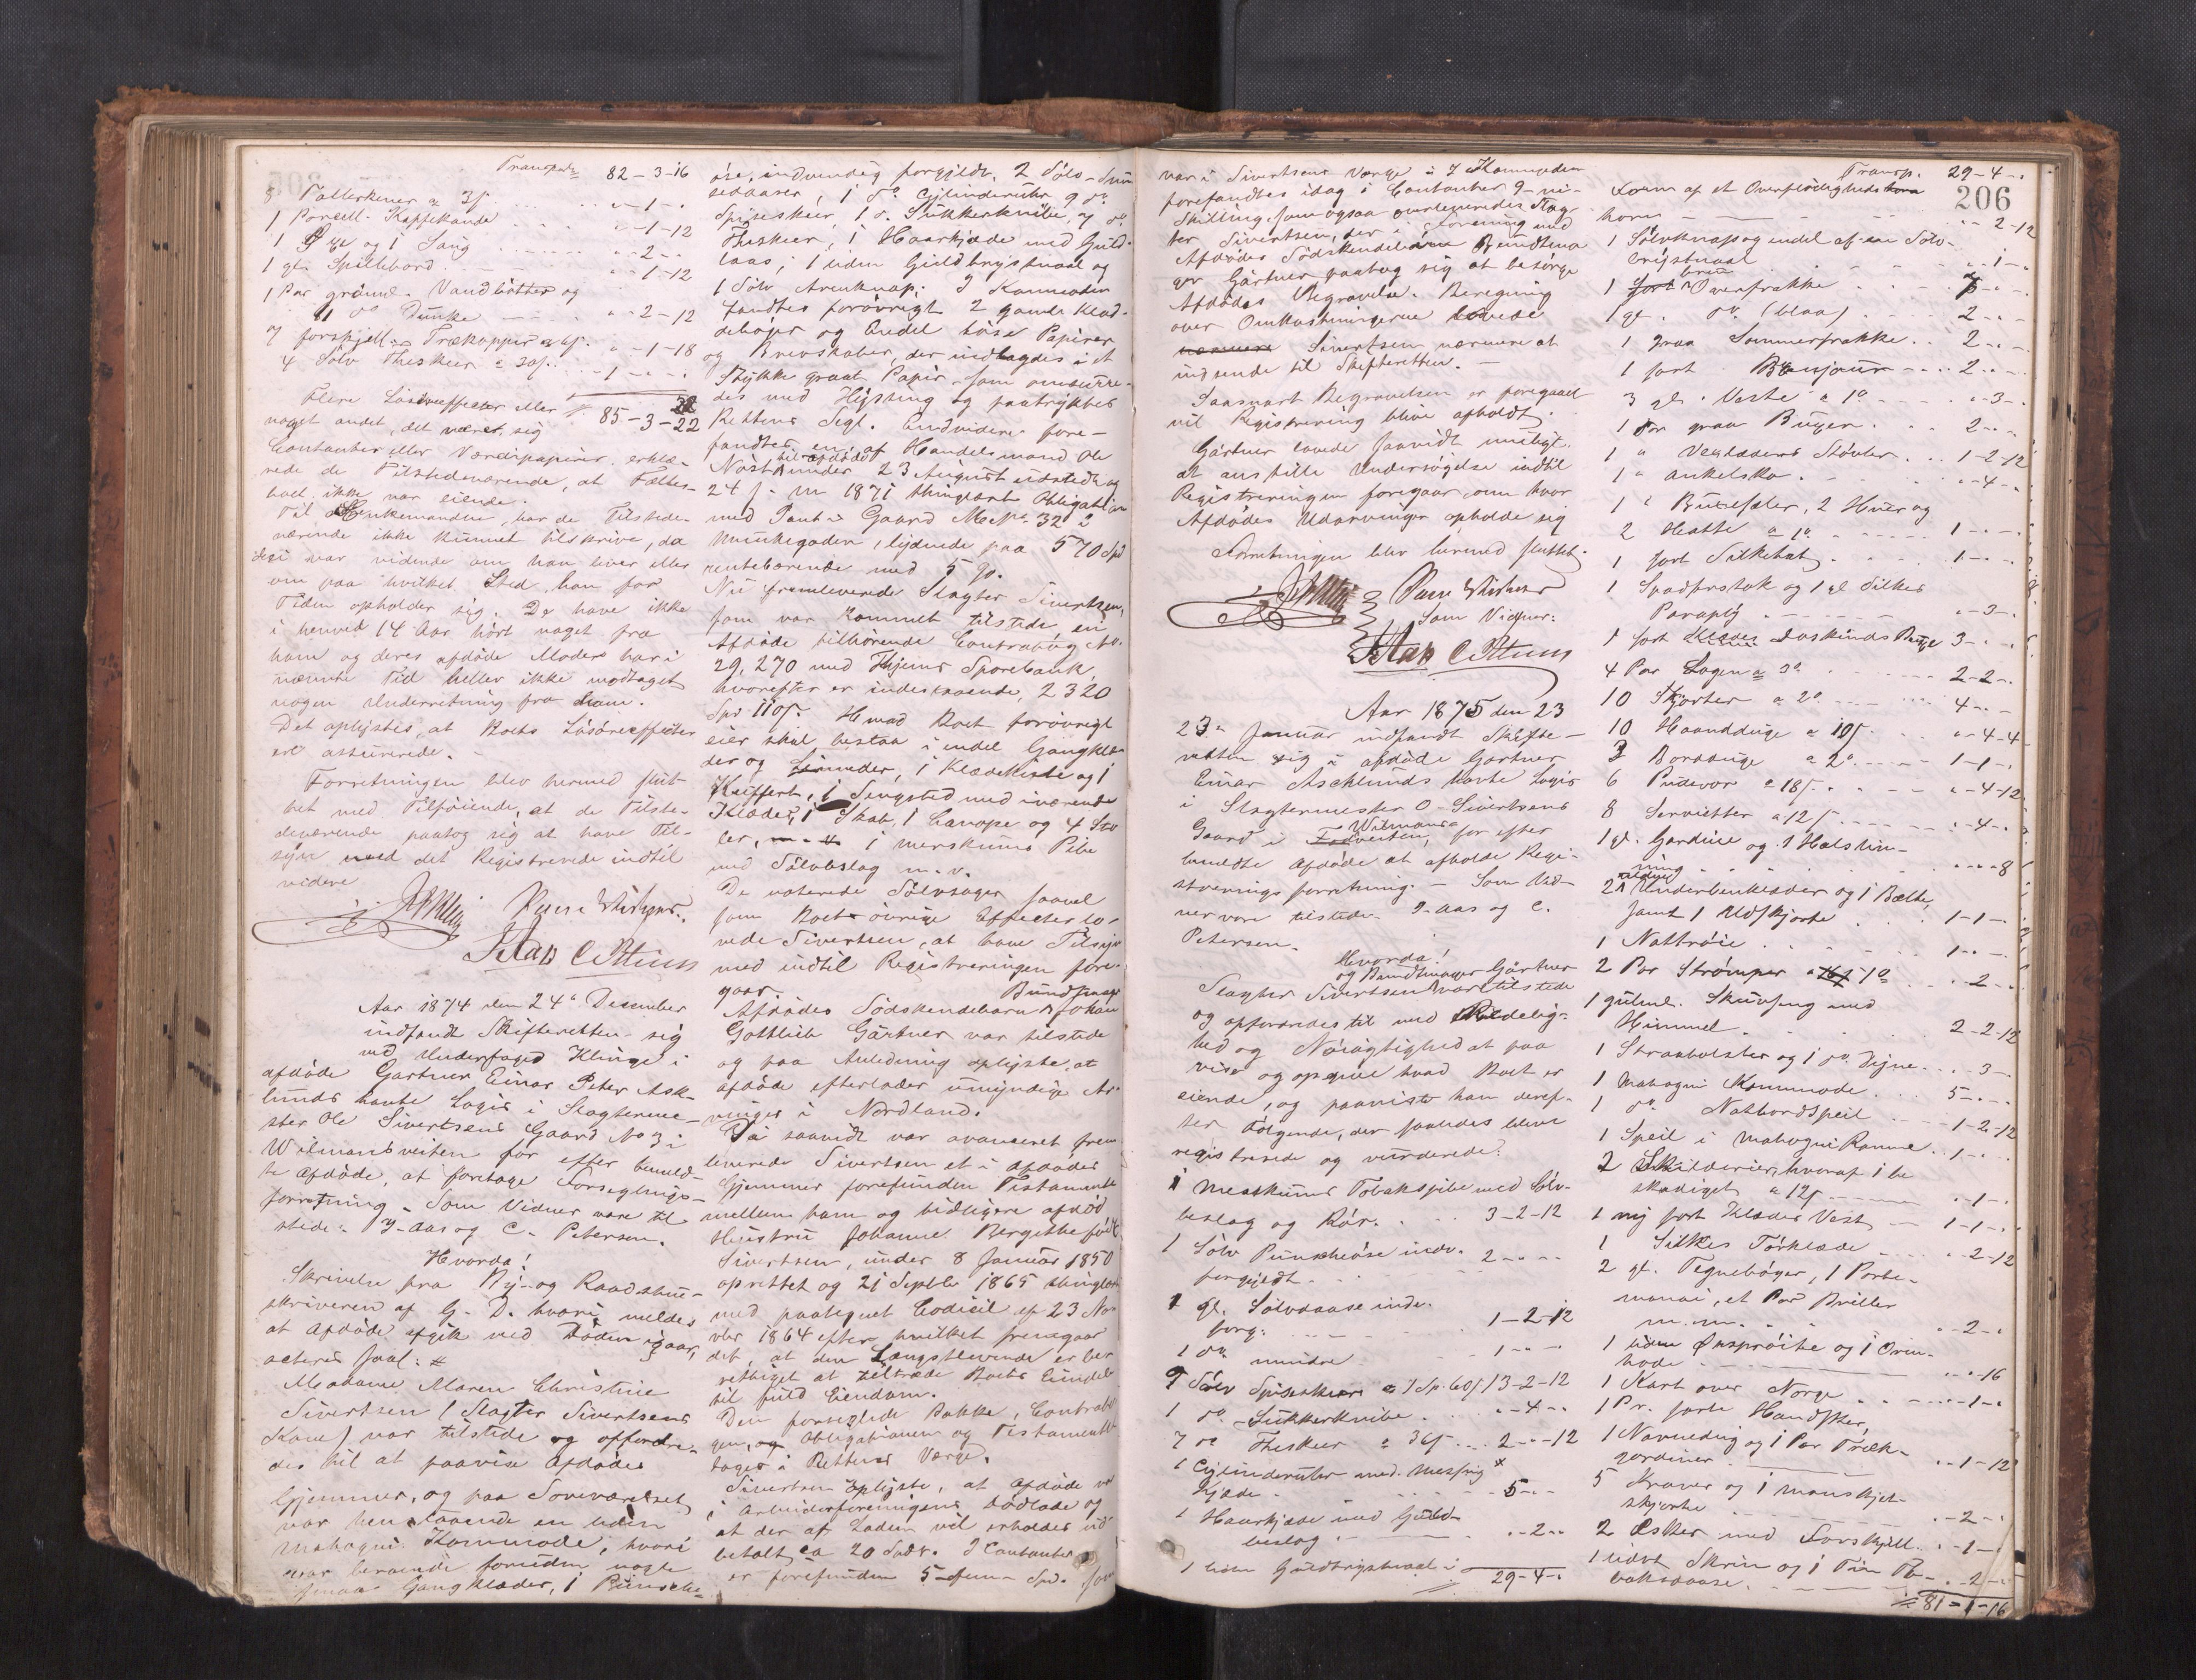 Transport 82-3-16
8 Tallerkener a 3ſ. " -1- "
1 Porcell. Kaffekande " -1-12
1 og 1 Sang " -2- "
1 gl. Spillebord " -1-12
1 Par grønne Vandbøtter og
1 do Dunke " -2-12
7 forskjell. Trækopper a 6ſ. " -1-18
4 Sølv Theskeer a 30ſ. 1- " - "
85-3-22
Flere Løsøreeffecter eller
noget andet, det være sig
Contanter eller Værdipapirer, erklæ-
rede de Tilstedeværende, at Fælles-
boet ikke var eiende.
Til Enkemanden, har de Tilstede-
værende ikke kunnet tilskrive, da
de ei var vidende om han lever eller
om paa hvilket Sted han for
Tiden opholder sig. De have ikke
i henved 14 Aar hørt noget fra
ham og deres afdøde Moder har i
nævnte Tid heller ikke modtaget
nogen Underretning fra ham.
Det oplystes, at Boets Løsøreeffecter
ere assurerede. -
Forretningen blev hermed slut-
tet med Tilføiende, at de Tilste-
deværende paatog sig at have Til-
syn med det Registrerede indtil
videre
Aar 1874 den 24de December
indfandt Skifteretten sig
ved Underfoged Klinge i
afdøde Gartner Einar Peter Ask-
lunds havte Logis i Slagterme-
ster Ole Sivertsens Gaard No 3 i
Wilmansveiten for efter bemeld-
te Afdøde, at foretage Forseglings-
forretning. Som Vidner vare til-
stede: J. Aas og C. Petersen.
Hvorda!
Skrivelse fra By- og Raadstue-
skriveren af G. D. hvori meldes
at Afdøde afgik ved Døden igaar,
acteres saal:
Madame Maren Christine
Sivertsen (Slagter Sivertsens
Kone) var tilstede og opfordre-
des til at paavise Afdødes
Gjemmer, og paa Soveværelset
var henstaaende en liden
Mahogni Kommode, hvori
var beroende foruden nogle
smaa Gangklæder, 1 Punsche-
øse, indvendig forgyldt, 2 Sølv-Snus-
sedaaser, 1 do Cylinderuhr, 9 do
Spiseskeer, 1 do Sukkerknibe, 7 do
Theskeer, 1 Haarkjæde med Guld-
laas, 1 liden Guldbrystnaal og
1 Sølv Areknap; I Kommoden
fandtes forøvrigt 2 gamle Klad-
debøger og Endel løse Papirer
og Brevskaber, der indlagdes i et
Stykke graat Papir, som omsurre-
des med Hyssing og paatrykkes
Rettens Segl. Endvidere fore-
fandtes en af Handelsmand Ole
Næst til Afdøde under 23 August udstedt og
24 s. M. 1871 thinglæst Obligation
med Pant i Gaard Matr. 32 i
Munkegaden, lydende paa 570 Spd
rentebærende med 5 %.
Nu fremleverede Slagter Sivertsen,
som var kommet tilstede, en
Afdøde tilhørende Contrabog No.
29,270 med Thjems Sparebank,
hvorefter er indestaaende, 2320
Spd 110ſ. Hvad Boet forøvrigt
eier skal bestaa i endel Gangklæ-
der og Linneder, 1 Klædekiste og 1
Kuffert, 1 Sengsted med iværende
Klæder, 1 Skab, 1 Canape og 4 Sto-
ler, 1 Merskums Pibe
med Sølvbeslag m. v.
De noterede Sølvsager saavel
som Boets øvrige Effecter lo-
vede Sivertsen, at have Tilsyn
med indtil Registreringen fore-
gaar.
Afdødes Sødskendebarn Bundtmager Johan
Gottlieb Gärtner var tilstede
og paa Anledning oplyste, at
Afdøde efterlader umyndige Ar-
vinger i Nordland.
Da saavidt var avanceret frem-
leverede Sivertsen et i Afdødes
Gjemmer forefunden Testamente
mellem ham og tidligere afdød
Hustru Johanne Bergitte født
Sivertsen, under 8 Januar 1850
oprettet og 21 Septbr 1865 thinglæst
med paategnet Codicil af 23 No-
vbr 1864 efter hvilket fremgaar
det, at den Længstlevende er be-
rettiget at tiltræde Boets Eiendele
til fuld Eiendom.
Den forseglede Pakke, Contrabo-
gen, og Obligationen og Testamentet
toges i Rettens Værge.
Sivertsen oplyste, at Afdøde var
i Arbeiderforeningens Dødlade og
at der af Laden vil erholdes ud-
betalt ca 20 Spdr. I Contanter
er forefunden 5 - fem - Spd. som
206
var i Sivertsens Værge. I Kommoden
forefandtes idag i Contanter 9 - ni -
Skilling, som ogsaa overleveredes Slag-
ter Sivertsen, der i Forening med
Afdødes Sødskendebarn Bundtma-
ger Gärtner paatog sig at besørge
Afdødes Begravelse. Beregning
over Omkostningerne lovede
Sivertsen nærmere at
indsende til Skifteretten. -
Saasnart Begravelsen er foregaaet
vil Registrering blive afholdt.
Gärtner lovede saavidt muligt
at anstille Undersøgelse indtil
Registreringen foregaar, om hvor
Afdødes Udarvinger opholde sig
Forretningen blev hermed sluttet.
Som Vidner:
Aar 1875 den 23
23de Januar indfandt Skifte-
retten sig i afdøde Gartner
Einar Aschlunds havte Logis
i Slagtermester O. Sivertsens
Gaard i Wilmansveiten, for efter
bemeldte Afdøde at afholde Regi-
streringsforretning. - Som Vid-
ner vare tilstede J. Aas og C.
Petersen.
Hvorda!
Slagter Sivertsen og Bundtmager Gärtner var tilstede
og opfordredes til med Redelig-
hed og Nøiagtighed at paa-
vise og opgive hvad Boet er
eiende, og paaviste han deref-
ter Følgende, der saaledes bleve
registrerede og vurderede:
1 Merskums Tobakspibe med Sølv-
beslag og Rør. 3-2-12
1 Sølv Punscheøse indv.
forgyldt 2- " - "
1 gl. Sølvdaase indv.
forg. 1-2-12
1 do mindre 1- " - "
9 Sølv Spiseskeer a 1 Sp. 60ſ 13-2-12
1 do Sukkerknibe " -4- "
7 do Theskeer a 36ſ 2- " -12
1 Cylinderuhr med Messing
kjæde 5- " - "
1 Haarkjæde med Guld-
beslag " -2- "
1 liden Guldbrystnaal 1
29-4- "
Transp. 29-4- "
Form af et Overflødigheds
horn " -2-12
1 Sølvknap og endel af en Sølv-
brystnaal " -1- "
1 brun Overfrakke 7- " - "
1 gl. do (blaa) 2- " - "
1 graa Sommerfrakke 2- " - "
1 sort Bonjour 2- " - "
3 gl. Veste a 1 " -3- "
1 Par graa Buxer 2- " - "
1 " Støvler 1-2-12
1 " Ankelsko " -4- "
1 " Buxeseler, 2 Huer og
2 Hatte 1- " - "
1 sort Silkehat 1- " - "
1 Spadserstok og 1 gl Silkes
Paraply " -3- "
1 sort Buxe 3- " - "
4 Par Lagen a 3 2-2- "
10 Skjorter a 2 4- " - "
10 Haandduge a 10ſ " -4-4
3 Bordduge a 2 1-1- "
6 Pudevor a 18ſ " -4-12
8 Servietter a 12ſ " -4- "
1 gl. Gardine og 1 Halslin-
ning " - " -8
2 Underbenklæder og 1 Bælte,
samt 1 Uldskjorte 1-1- "
1 Nattrøie 1- "
2 Par Strømper a 1 " -2- "
1 gulmal. Skuvseng med
Himmel 2-2-12
1 Straabolster og 1 do Dyne " -3- "
1 Mahogni Kommode 5- " - "
1 do Natbordspeil 1-2-12
1 Speil i Mahogni Ramme 1- " - "
2 Skilderier, hvoraf 1 be-
skadiget a 12ſ " -1- "
1 ny sort Klædes Vest 1-1- "
1 Silkes Tørklæde " -2-12
2 gl. Tegnebøger, 1 Porte-
monai, et Par Briller
m. m. " -2- "
1 liden og 1 Oven-
hode " - " -16
1 Kart over Norge " -1- "
1 Pr. sorte Handsker,
1 Navnedug og 1 Par Træk-
gardiner " -1-12
5 Kraver og 1 Manskjet-
skjorte " -2- "
2 Æsker med Forskjell. " -1- "
1 lidet Skrin og 1 Tin To-
baksdaase " -2- "
81-1-16